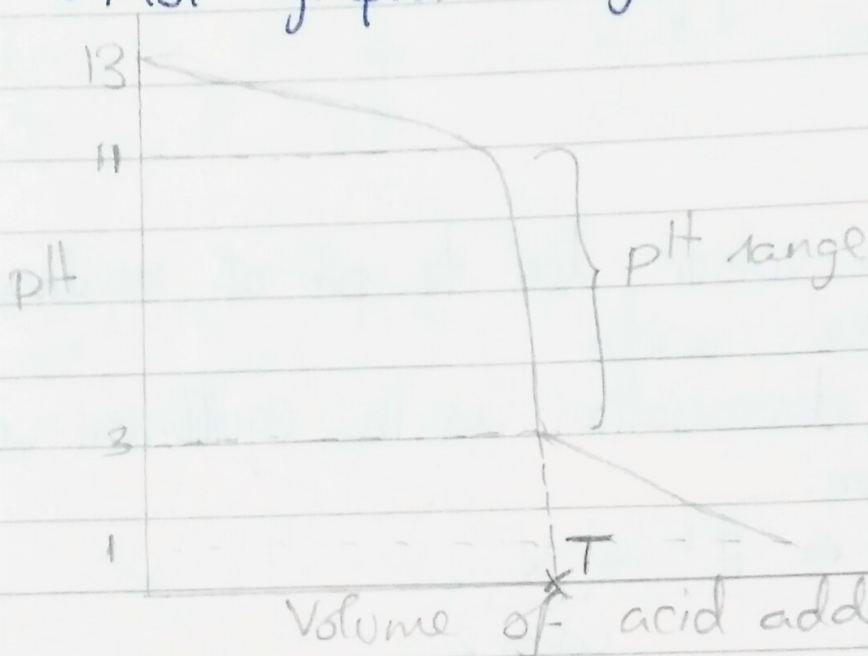 13
11
pH
pH range
3
1
T
Volume of acid add